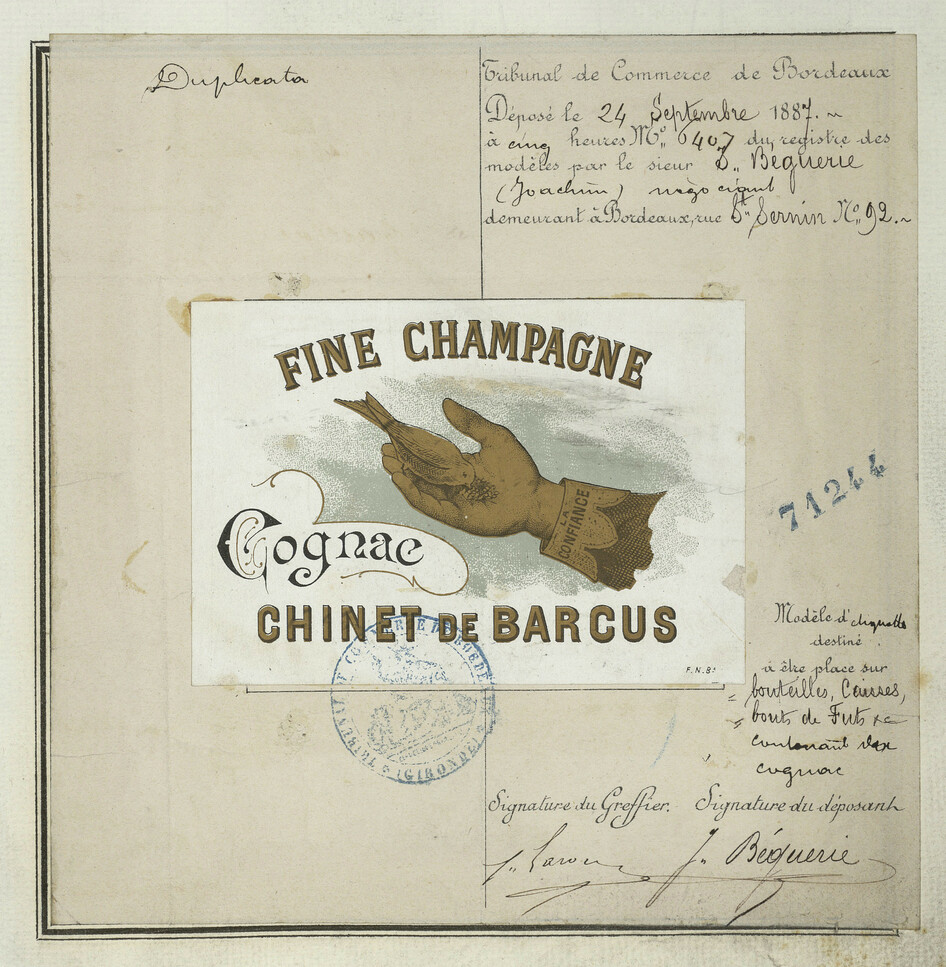 Duplicata
Tribunal de Commerce de Bordeaux
Déposé le 24 Septembre 1887.
à cinq heures Nº 6407 du registre des
modèles par le sieur J. Béguerie
(Joachim) négociant
demeurant à Bordeaux, rue St Sernin Nº 92.
FINE CHAMPAGNE
LA
CONFIANCE
Cognac
CHINET DE BARCUS
F.N.Bx
71244
Modèle d'étiquette
destiné
à être place sur
bouteilles, Caisses,
bouts de Futs
contenant
cognac
TRIBUNAL DE COMMERCE DE BORDEAUX
(GIRONDE)
Signature du Greffier. Signature du déposant
J. Béguerie